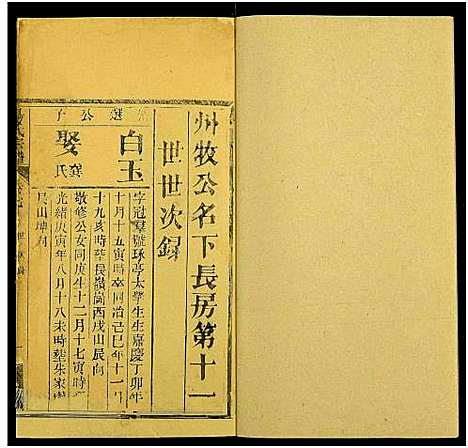 州牧公名下長房第十一
世世次錄
選公子
白玉
娶
龔氏
字冠羣號琢亭太學生生嘉慶丁卯年
十月十五寅時卒同治己巳年十一月
十九亥時葬長嶺崗西戌山辰向
敬修公女同庚生十二月十七寅時
光緒庚寅年八月十八未時葬朱家
艮山坤向